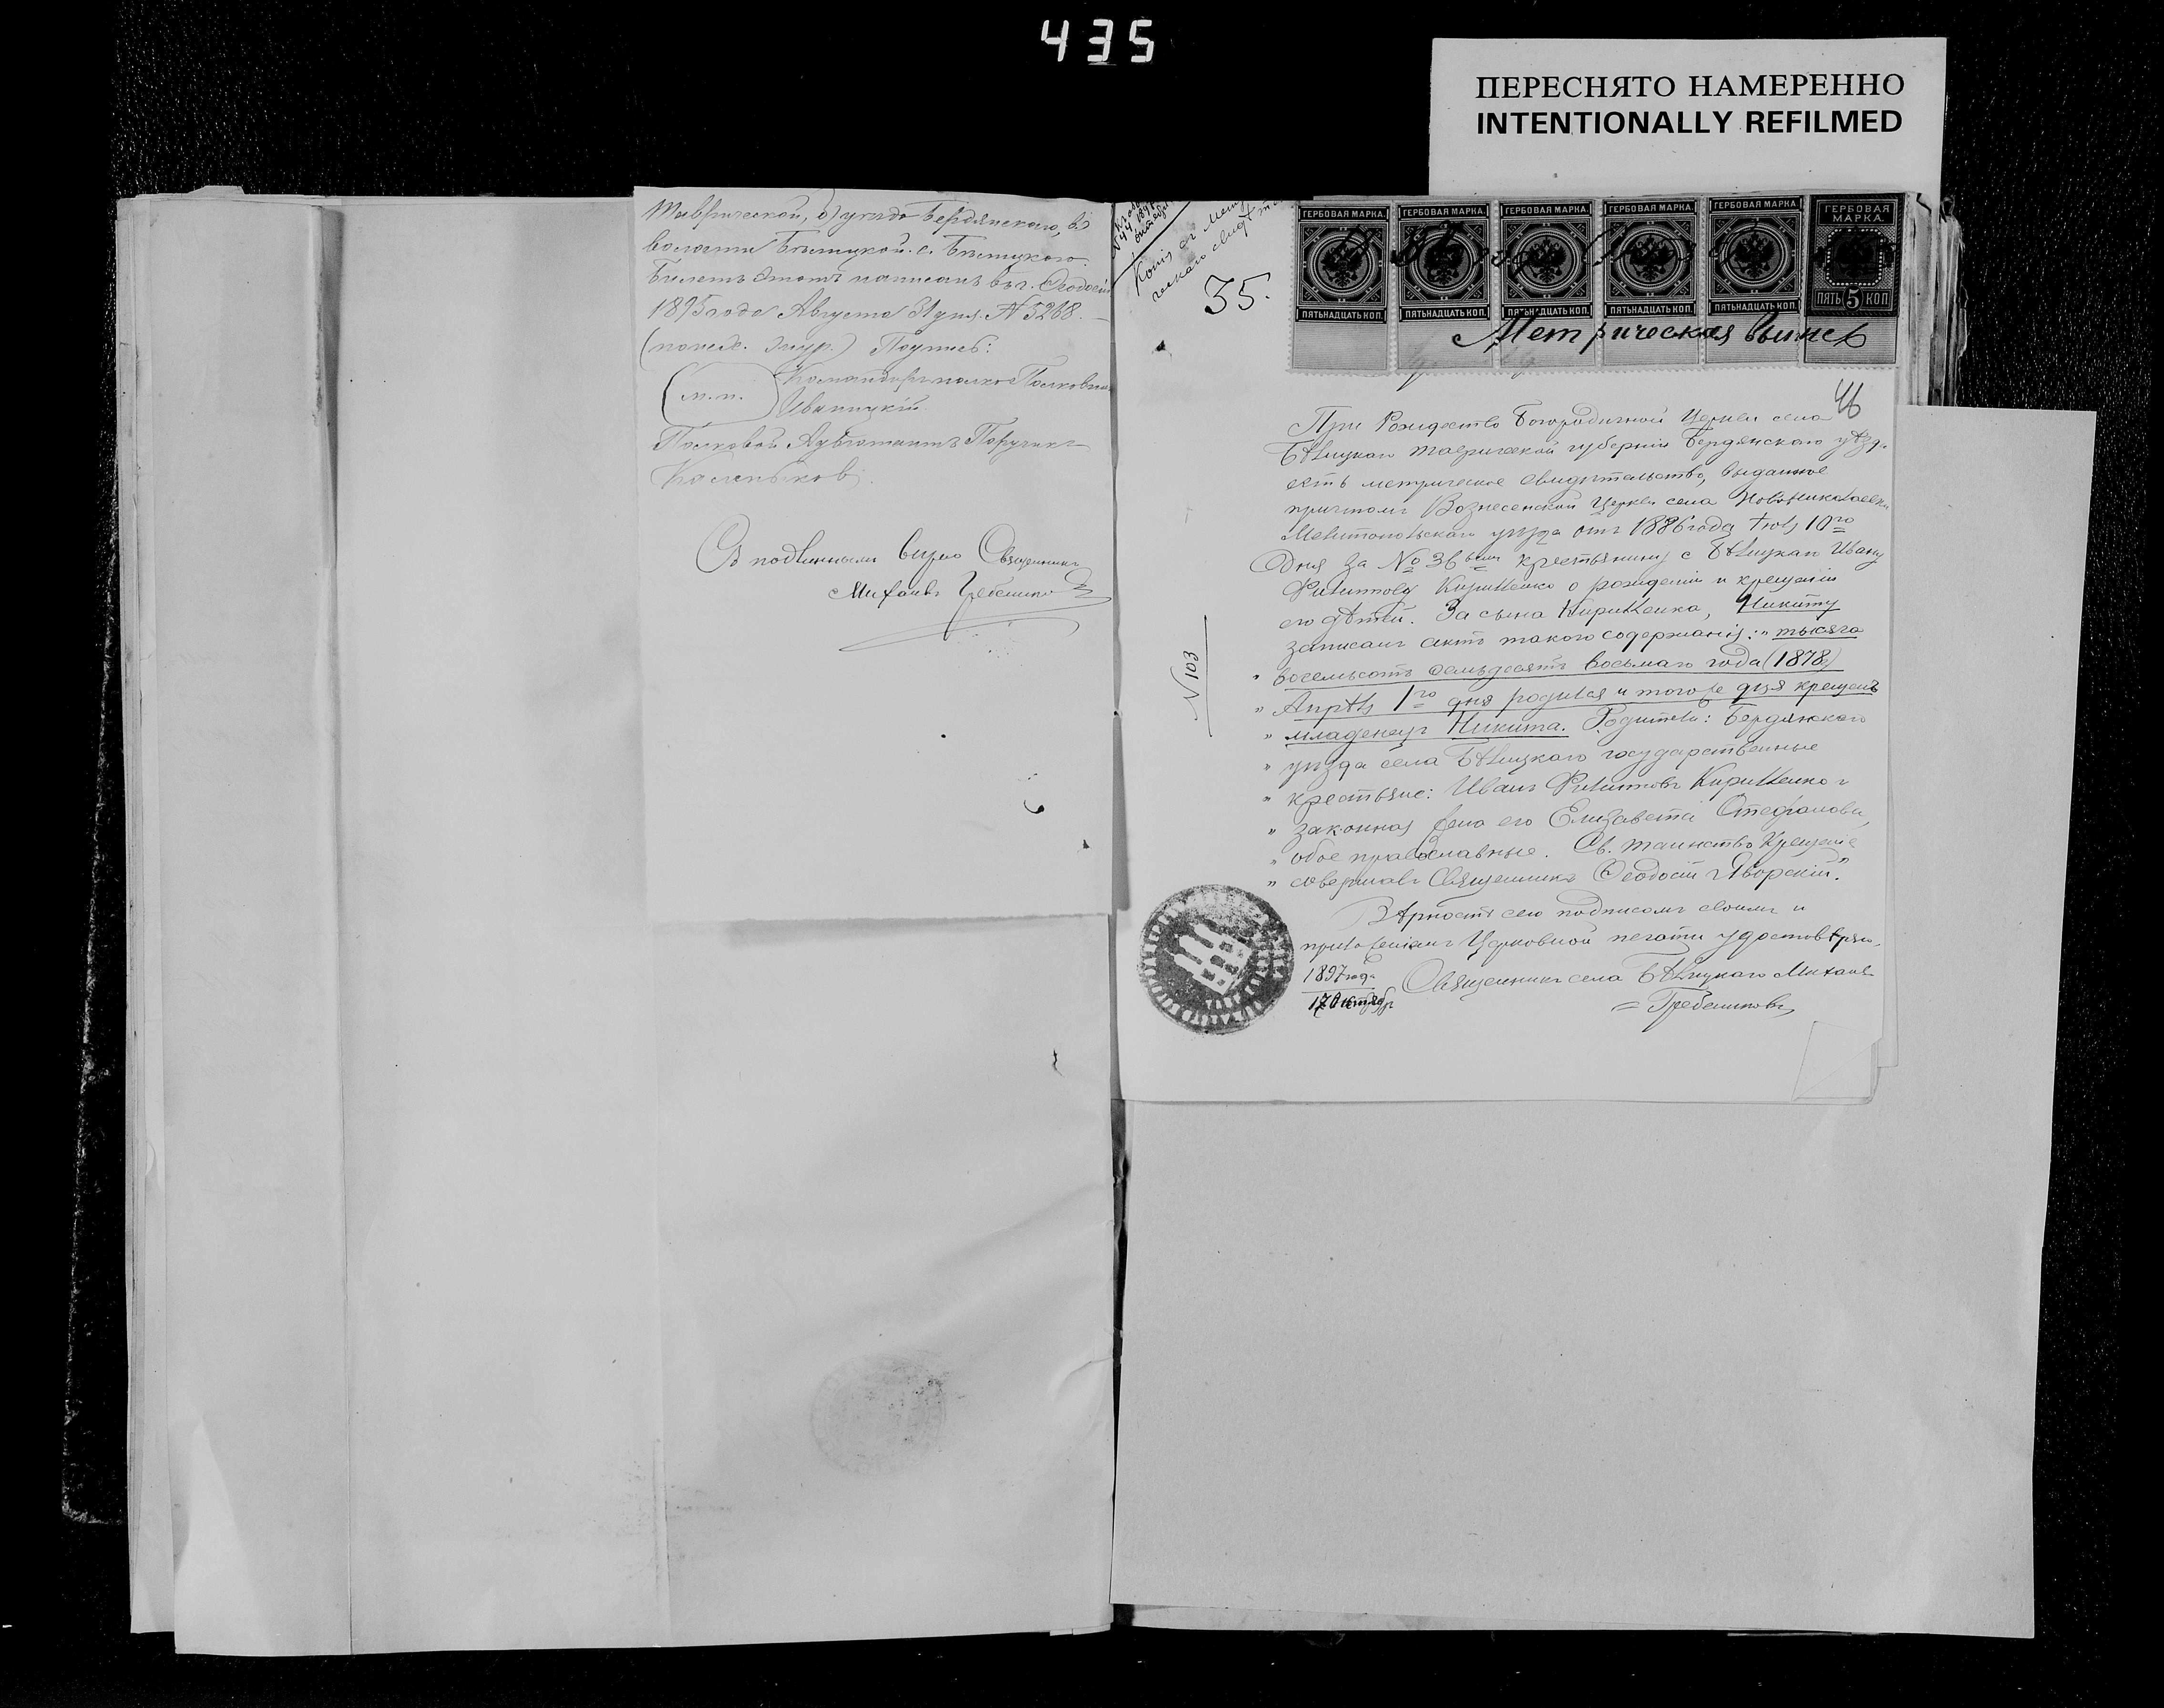 435
ПЕРЕСНЯТО НАМЕРЕННО
INTENTIONALLY REFILMED
Таврической, б) уезда Бердянскаго, в)
волости Белицкой. с. Белицкаго.
Билетъ этотъ написанъ въ г. Феодосіи
1895 года Августа 31 дня. № 5268.
Подпись:
(м. п.) Командиръ полка Полковникъ
Иваницкій
Полковой Адъютантъ Поручикъ
Съ подлиннымъ верно Священникъ
Михаилъ Гребенико
35.
ГЕРБОВАЯ МАРКА. ГЕРБОВАЯ МАРКА. ГЕРБОВАЯ МАРКА. ГЕРБОВАЯ МАРКА. ГЕРБОВАЯ МАРКА. ГЕРБОВАЯ МАРКА.
ПЯТЬНАДЦАТЬ КОП. ПЯТЬНАДЦАТЬ КОП. ПЯТЬНАДЦАТЬ КОП. ПЯТЬНАДЦАТЬ КОП. ПЯТЬНАДЦАТЬ КОП. ПЯТЬ 5 КОП
Метрическая выпись
46
При Рождество Богородичной Церкви села
Бѣлицкаго Таврической губерніи Бердянскаго уѣзда
есть метрическое свидѣтельство, выданное
причтомъ Вознесенской Церкви села Новониколаевки
Мелитопольскаго уѣзда отъ 1886 года 10го
Дня за № 36 крестьянину с Бѣлицкаго Ивану
Филиппову Кириленко о рожденіи и крещеніи
его дѣтей. За сына Кириленка, Никиту
записанъ актъ такого содержанія: „тысяча
„ восемьсотъ семьдесятъ восьмаго года (1878)
„ Апрѣля 1го дня родился и того же дня крещенъ
„ младенецъ Никита. Родители: Бердянскаго
„ уѣзда села Бѣлицкаго государственные
„ крестьяне: Иванъ Филипповъ Кириленко и
„ законная жена его Елизавета Стефанова,
„ обое православные. Св. таинство Крещенія
„ совершалъ Священникъ Феодосій Яворскій."
№ 103
Вѣрность сего подписомъ своимъ и
приложеніемъ Церковной печати удостовѣряю.
1897 года Священникъ села Бѣлицкаго Михаилъ
17 Октября Гребениковъ